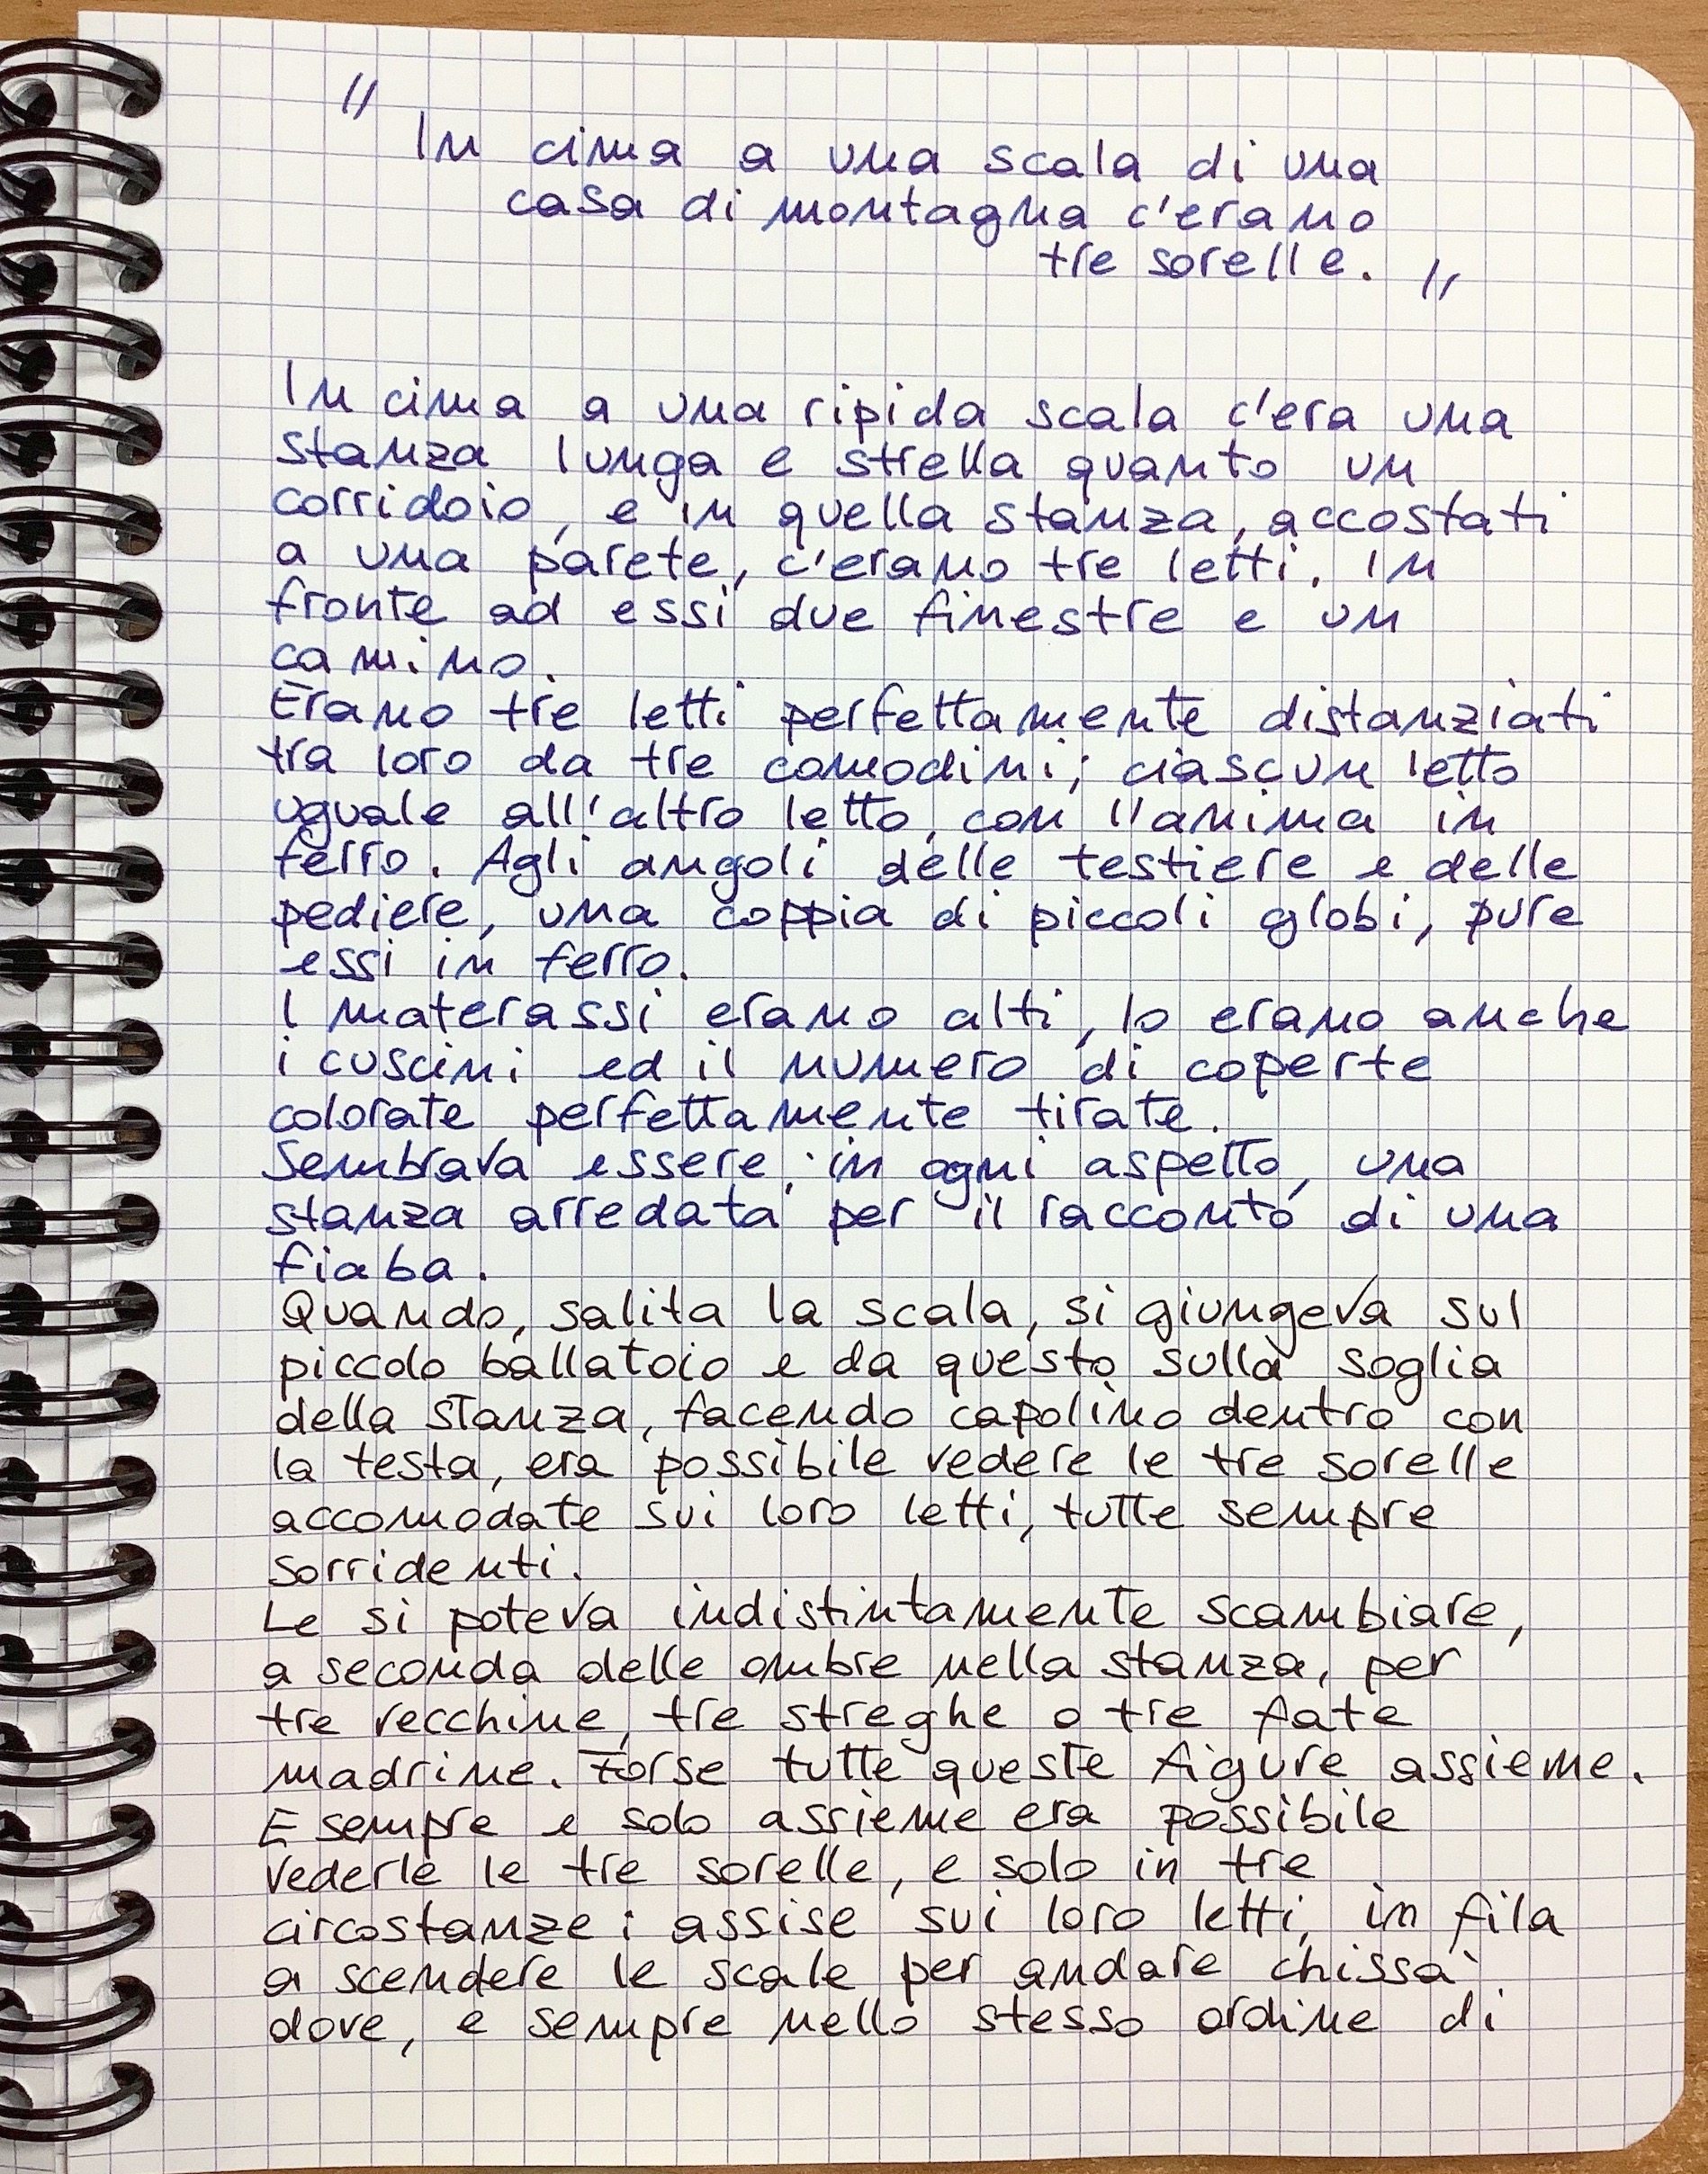 "
In cima a una scala di una
casa di montagna c'erano
tre sorelle. "
In cima a una ripida scala c'era una
stanza lunga e stretta quanto un
corridoio, e in quella stanza, accostati
a una parete, c'erano tre letti. In
fronte ad essi due finestre e un
camino.
Erano tre letti perfettamente distanziati
tra loro da tre comodini; ciascun letto
uguale all'altro letto, con l'anima in
ferro. Agli angoli delle testiere e delle
pediere, una coppia di piccoli globi, pure
essi in ferro.
I materassi erano alti, lo erano anche
i cuscini ed il numero di coperte
colorate perfettamente tirate.
Sembrava essere, in ogni aspetto, una
stanza arredata per il racconto di una
fiaba.
Quando, salita la scala, si giungeva sul
piccolo ballatoio e da questo sulla soglia
della stanza, facendo capolino dentro con
la testa, era possibile vedere le tre sorelle
accomodate sui loro letti, tutte sempre
sorridenti.
Le si poteva indistintamente scambiare,
a seconda delle ombre nella stanza, per
tre vecchine, tre streghe o tre fate
madrine. Forse tutte queste figure assieme.
E sempre e solo assieme era possibile
vederle le tre sorelle, e solo in tre
circostanze: assise sui loro letti, in fila
a scendere le scale per andare chissà
dove, e sempre nello stesso ordine di